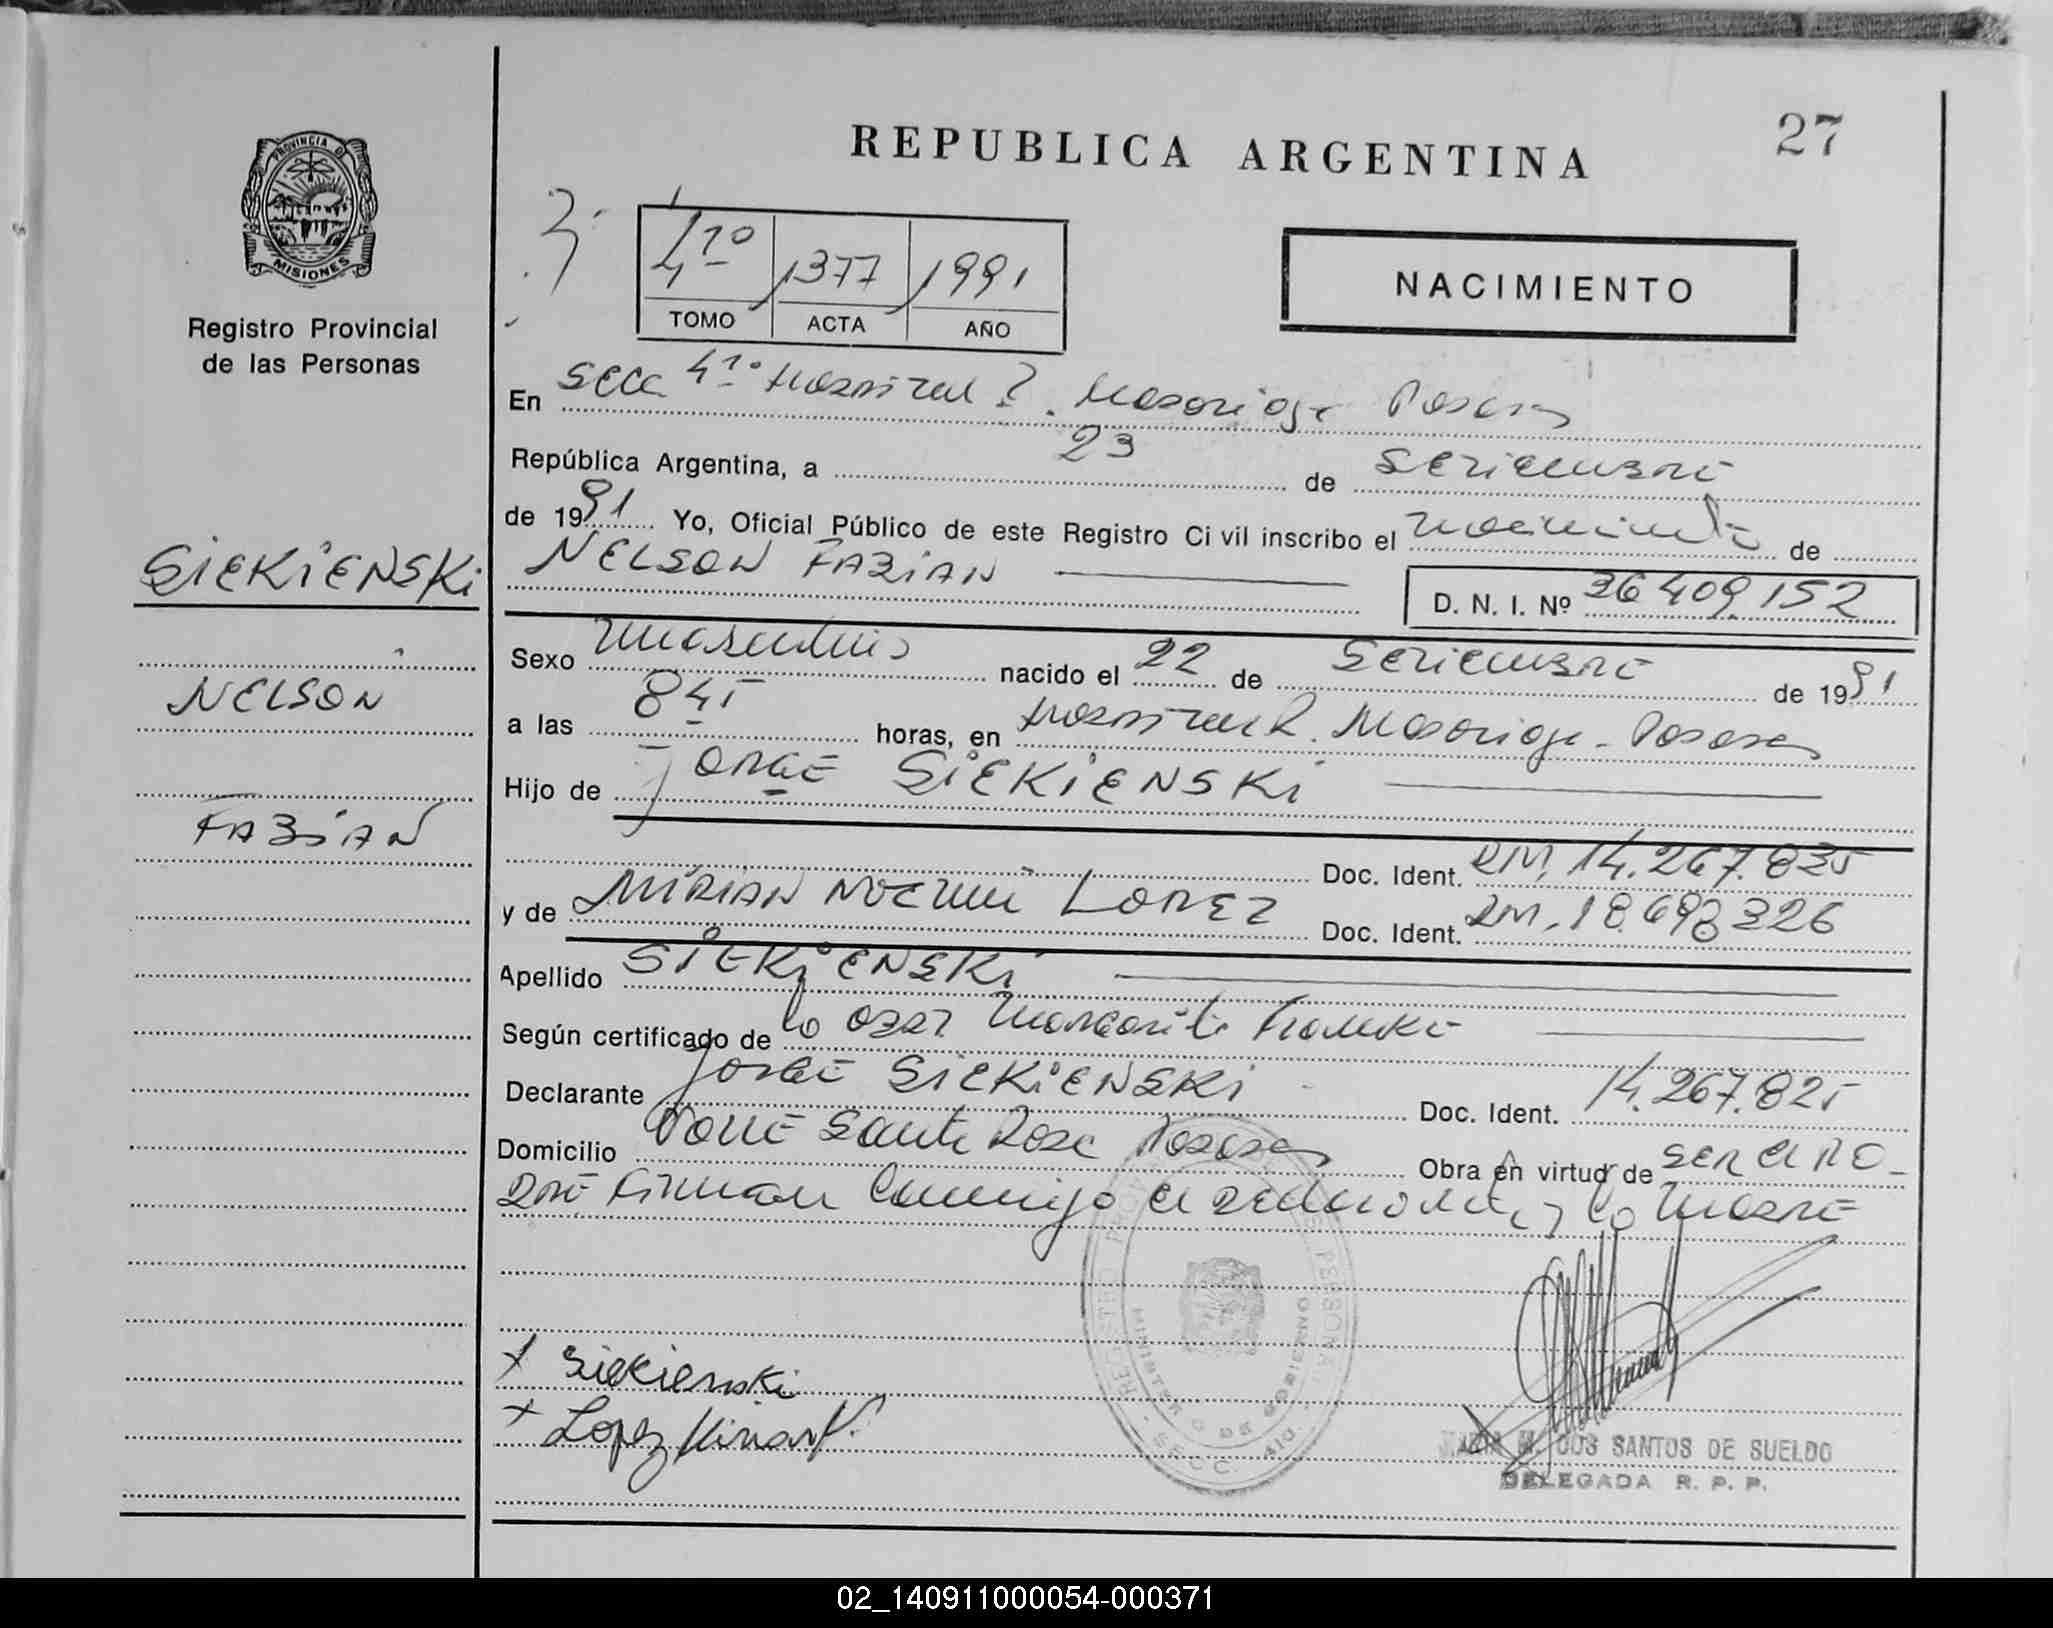 REPUBLICA ARGENTINA
27
PROVINCIA DE
MISIONES
Registro Provincial
de las Personas
4º 1377 1991
TOMO ACTA AÑO
NACIMIENTO
En Secc 4º Hospital R. Madariaga Posadas
República Argentina, a 23 de Setiembre
de 1991 Yo, Oficial Público de este Registro Civil inscribo el nacimiento de
NELSON FABIAN D. N. I. Nº 36409152
SIEKIENSKI
NELSON
FABIAN
Sexo masculino nacido el 22 de Setiembre de 1991
a las 845 horas, en Hospital R. Madariaga - Posadas
Hijo de JORGE SIEKIENSKI
Doc. Ident. DNI. 14.267.825
y de MIRIAN NOEMI LOPEZ Doc. Ident. DNI. 18698326
Apellido SIEKIENSKI
Según certificado de la Obst Margarita
Declarante JORGE SIEKIENSKI Doc. Ident. 14.267.825
Domicilio Santa Rosa Posadas Obra en virtud de ser el PA-
DRE Firman Conmigo el declarante y la Madre
Siekienski
Lopez Mirian N.
REGISTRO PROVINCIAL DE LAS PERSONAS
MINISTERIO DE GOBIERNO
SECC. 4ta
MARIA M. DOS SANTOS DE SUELDO
DELEGADA R. P. P.
02_140911000054-000371